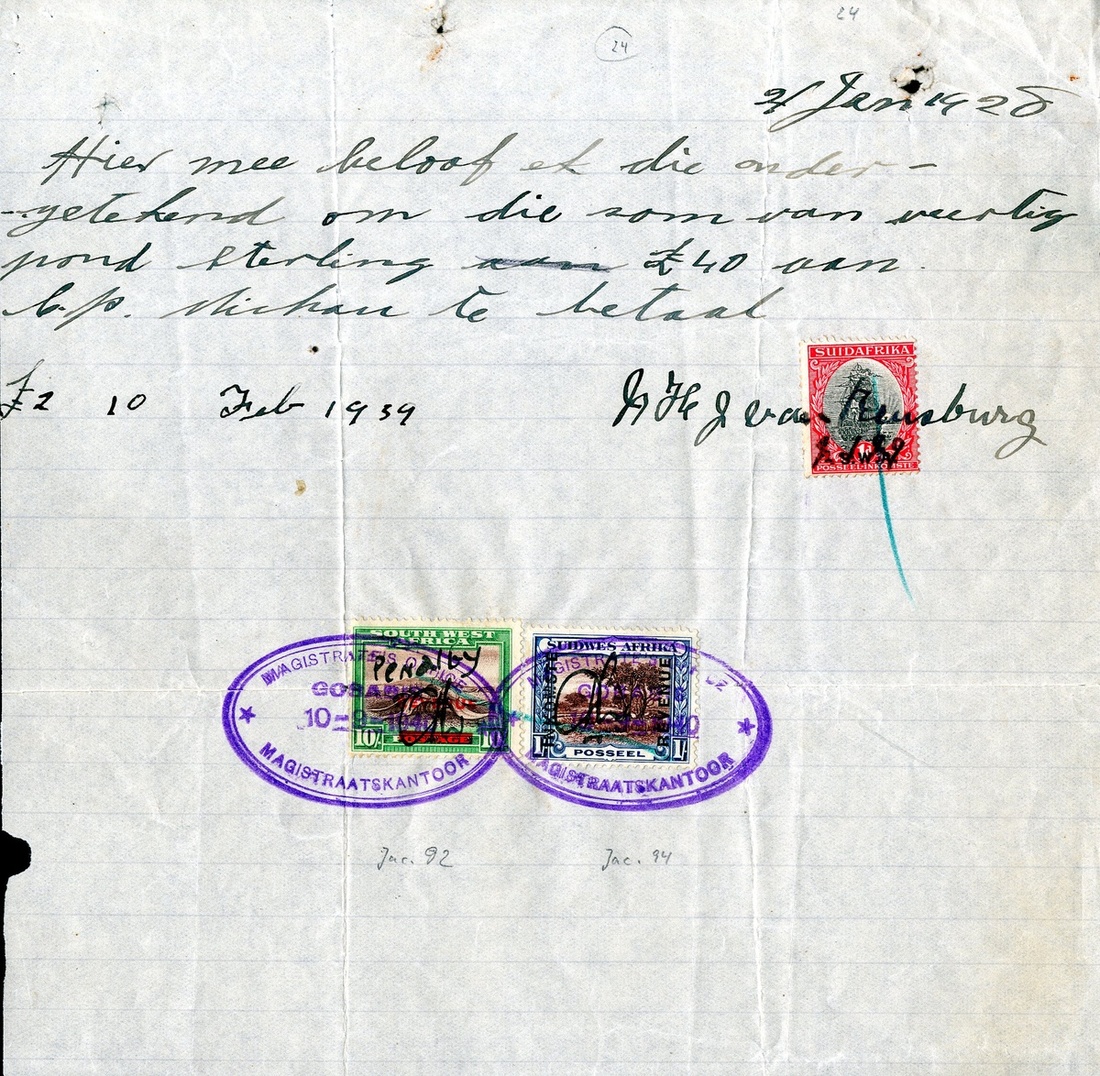 24
24
21 Jan 1928
Hier mee beloof ek die onder-
-getekend om die som van veertig
pond Sterling aan £40 aan.
C.P. Michau te betaal
SUIDAFRIKA
£2 10 Feb 1939
J van Rensburg
POSSEEL-INKOMSTE
SOUTH WEST AFRICA
Penalty
10/- 10/-
POSTAGE
SUIDWES AFRIKA
INKOMSTE REVENUE
1/- POSSEEL 1/-
MAGISTRATE'S OFFICE
GOBABIS
MAGISTRAATSKANTOOR
MAGISTRAATSKANTOOR
Jac. 92 Jac. 94